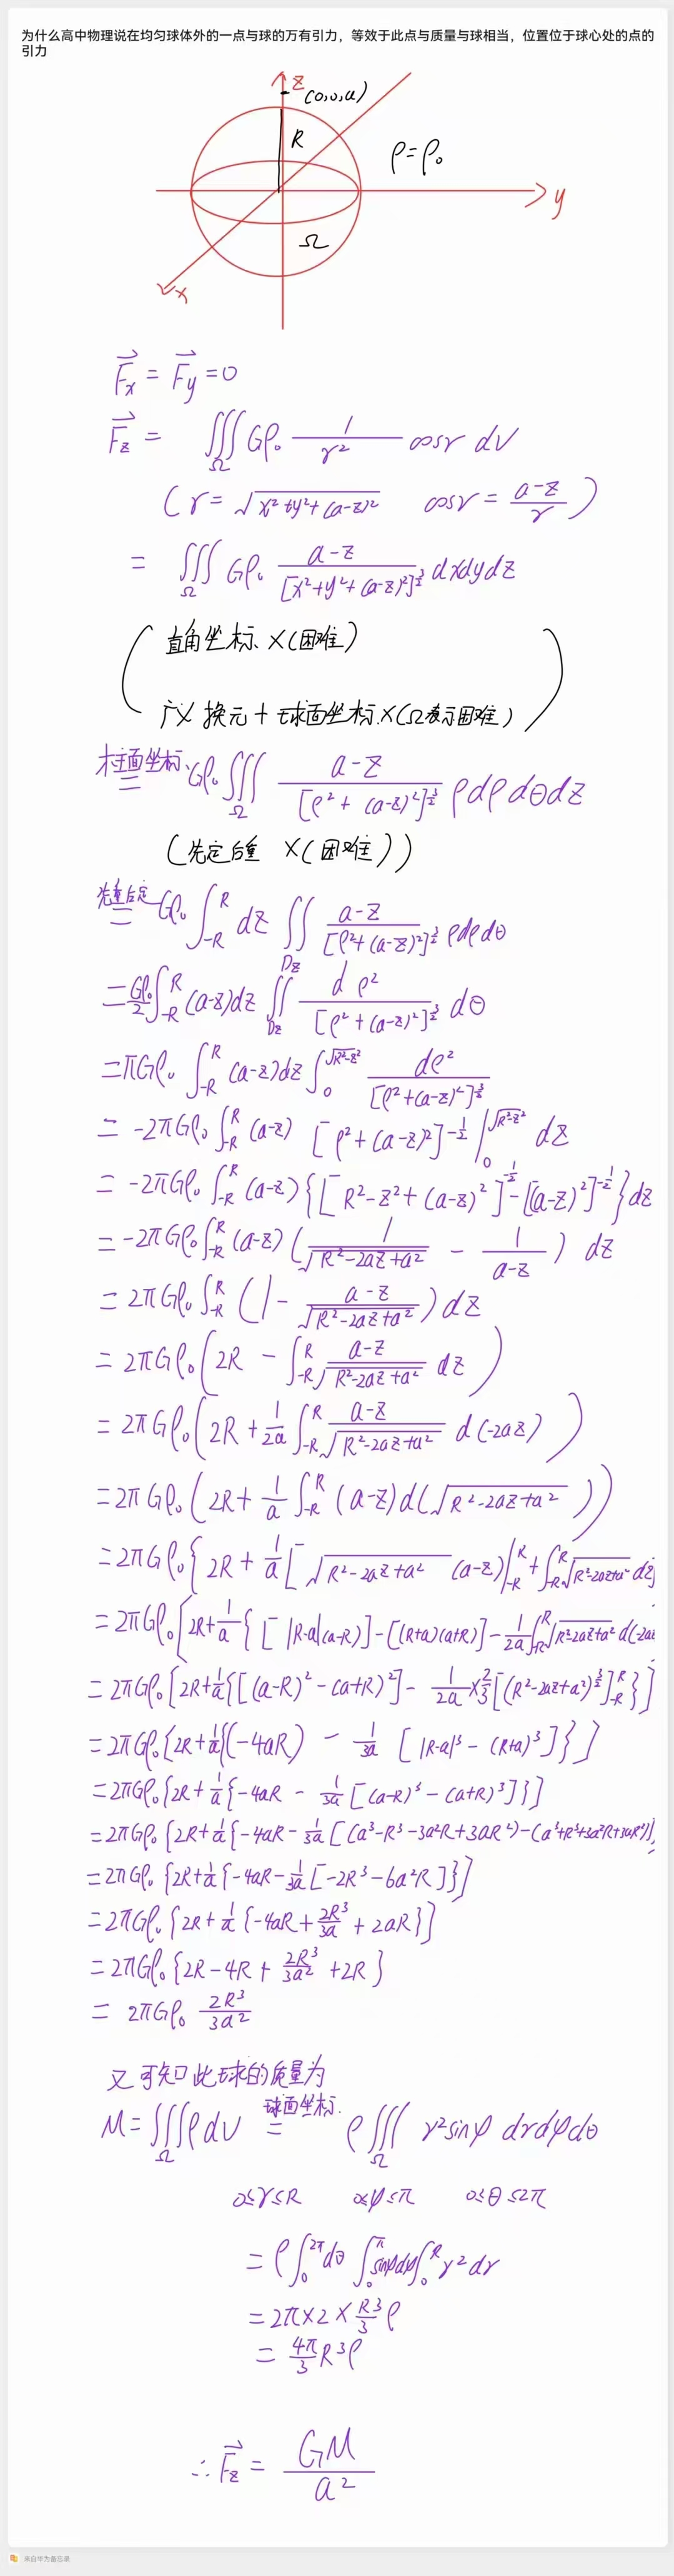 为什么高中物理说在均匀球体外的一点与球的万有引力，等效于此点与质量与球相当，位置位于球心处的点的
引力
z (0,0,a)
R
ρ=ρ₀
y
Ω
x
F⃗x = F⃗y = 0
F⃗z = ∭_Ω Gρ₀ 1/r² cosγ dV
( r = √(x²+y²+(a-z)²) cosγ = (a-z)/r )
= ∭_Ω Gρ₀ (a-z)/[x²+y²+(a-z)²]^(3/2) dxdydz
( 直角坐标 ×(困难)
广义换元+球面坐标 ×(Ω表示困难) )
柱面坐标 = Gρ₀ ∭_Ω (a-z)/[ρ²+(a-z)²]^(3/2) ρdρdθdz
(先定后重 ×(困难))
先重后定 = Gρ₀ ∫_{-R}^{R} dz ∬_{Dz} (a-z)/[ρ²+(a-z)²]^(3/2) ρdρdθ
= Gρ₀/2 ∫_{-R}^{R} (a-z)dz ∬_{Dz} dρ²/[ρ²+(a-z)²]^(3/2) dθ
= πGρ₀ ∫_{-R}^{R} (a-z)dz ∫_0^{√(R²-z²)} dρ²/[ρ²+(a-z)²]^(3/2)
= -2πGρ₀ ∫_{-R}^{R} (a-z) [ρ²+(a-z)²]^(-1/2) |_0^{√(R²-z²)} dz
= -2πGρ₀ ∫_{-R}^{R} (a-z){[R²-z²+(a-z)²]^(-1/2) - [(a-z)²]^(-1/2)}dz
= -2πGρ₀ ∫_{-R}^{R} (a-z)( 1/√(R²-2az+a²) - 1/(a-z) ) dz
= 2πGρ₀ ∫_{-R}^{R} (1 - (a-z)/√(R²-2az+a²)) dz
= 2πGρ₀(2R - ∫_{-R}^{R} (a-z)/√(R²-2az+a²) dz)
= 2πGρ₀(2R + 1/2a ∫_{-R}^{R} (a-z)/√(R²-2az+a²) d(-2az))
= 2πGρ₀(2R + 1/a ∫_{-R}^{R} (a-z)d(√(R²-2az+a²)))
= 2πGρ₀{2R + 1/a[√(R²-2az+a²) (a-z)|_{-R}^{R} + ∫_{-R}^{R} √(R²-2az+a²) dz]
= 2πGρ₀[2R + 1/a{[|R-a|(a-R)] - [(R+a)(a+R)] - 1/2a ∫_{-R}^{R} √(R²-2az+a²) d(-2az
= 2πGρ₀[2R + 1/a{[(a-R)² - (a+R)²] - 1/2a × 2/3[(R²-2az+a²)^(3/2)]_{-R}^{R}}]
= 2πGρ₀{2R + 1/a{(-4aR) - 1/3a [|R-a|³ - (R+a)³]}}
= 2πGρ₀{2R + 1/a{-4aR - 1/3a[(a-R)³ - (a+R)³]}}
= 2πGρ₀{2R + 1/a{-4aR - 1/3a[(a³-R³-3a²R+3aR²) - (a³+R³+3a²R+3aR²)]
= 2πGρ₀{2R + 1/a{-4aR - 1/3a[-2R³-6a²R]}}
= 2πGρ₀{2R + 1/a{-4aR + 2R³/3a + 2aR}}
= 2πGρ₀{2R - 4R + 2R³/3a² + 2R}
= 2πGρ₀ 2R³/3a²
又可知此球的质量为
M = ∭_Ω ρdV 球面坐标 = ρ∭_Ω r²sinφ drdφdθ
0≤r≤R 0≤φ≤π 0≤θ≤2π
= ρ∫_0^{2π} dθ ∫_0^π sinφdφ ∫_0^R r²dr
= 2π×2×R³/3 ρ
= 4π/3 R³ρ
∴ F⃗z = GM/a²
来自华为备忘录